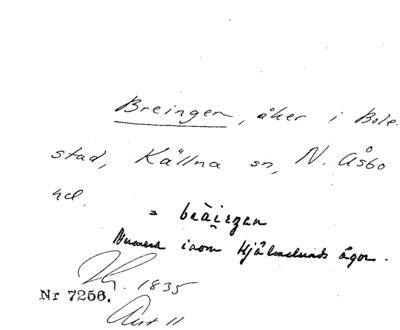 Breingen, åker i Bole-
stad, Källna sn, N. Åsbo
hd.
= bräiŋen
Numera inom Hjälmslunds ägor.
1835
Nr 7256.